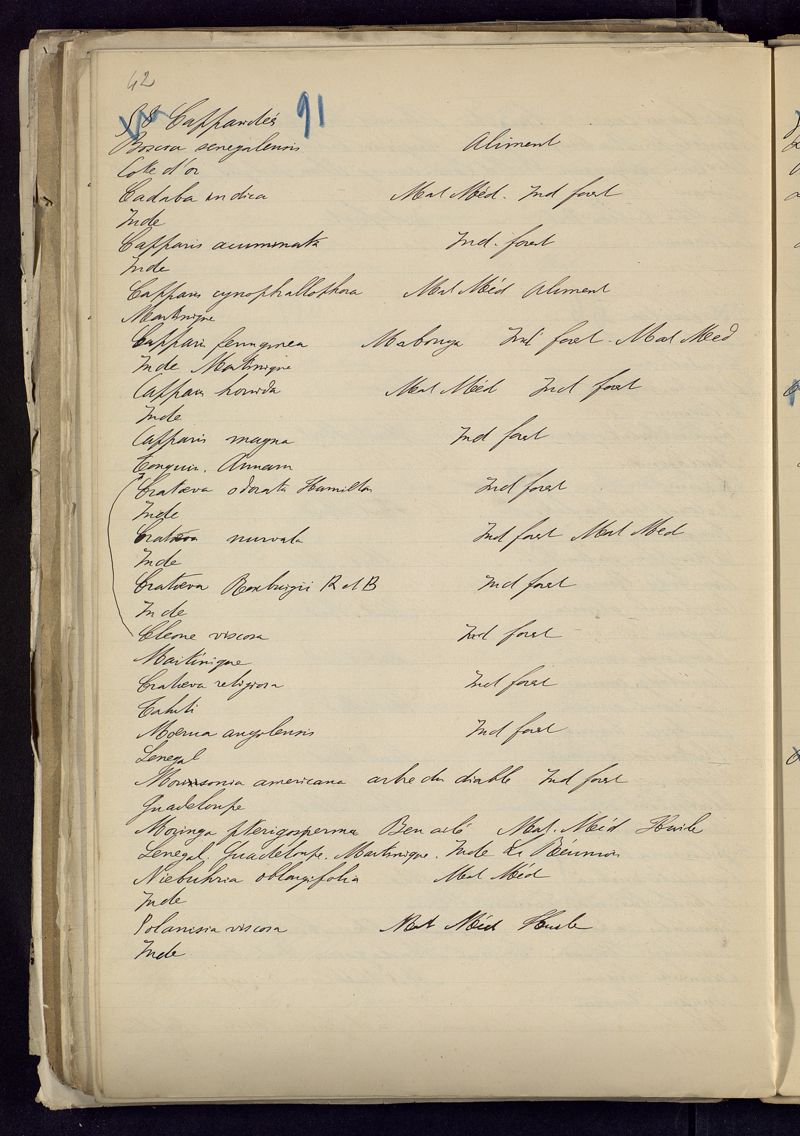 42
Capparidés 91
Boscia senegalensis Aliment
Cote d'or
Cadaba indica Mat Méd. Ind forest
Inde
Capparis acuminata Ind. forest
Inde
Capparis cynophallophora Mat Méd Aliment
Martinique
Capparis ferruginea Mabouya Ind forest. Mat Med
Inde Martinique
Capparis horrida Mat Méd Ind forest
Inde
Capparis magna Ind forest
Tonquin. Annam
Cratæva odorata Hamilton Ind forest
Inde
Cratæva nurvala Ind forest Mat Med
Inde
Cratæva Roxburgii R et B Ind forest
Inde
Cleone viscosa Ind forest
Martinique
Cratæva religiosa Ind forest
Tahiti
Moerua angolensis Ind forest
Senegal
Morisonia americana arbre du diable Ind forest
Guadeloupe
Moringa pterigosperma Ben ailé Mat. Méd Huile
Senegal, Guadeloupe. Martinique. Inde La Réunion
Niebuhria oblongifolia Mat Méd
Inde
Polanisia viscosa Mat Méd Huile
Inde